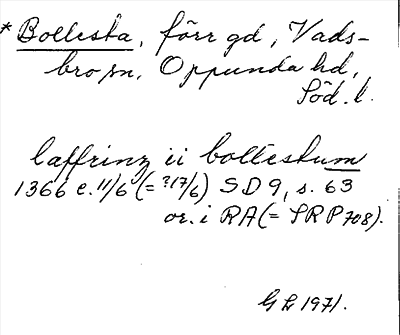 * Bollesta, förr gd, Vads-
bro sn, Oppunda hd,
Söd. l.
laffrinz ii bollestum
1366 e. 11/6 (= ?17/6) SD 9, s. 63
or. i RA (= SRP 708).
G L 1971.